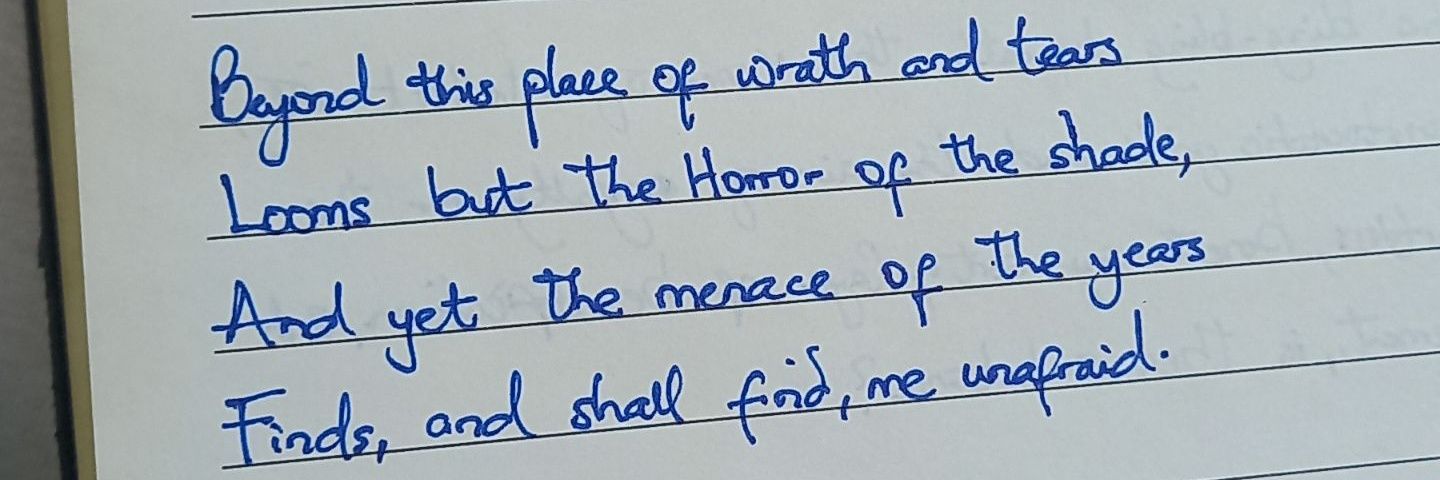 Beyond this place of wrath and tears
Looms but the Horror of the shade,
And yet the menace of the years
Finds, and shall find, me unafraid.